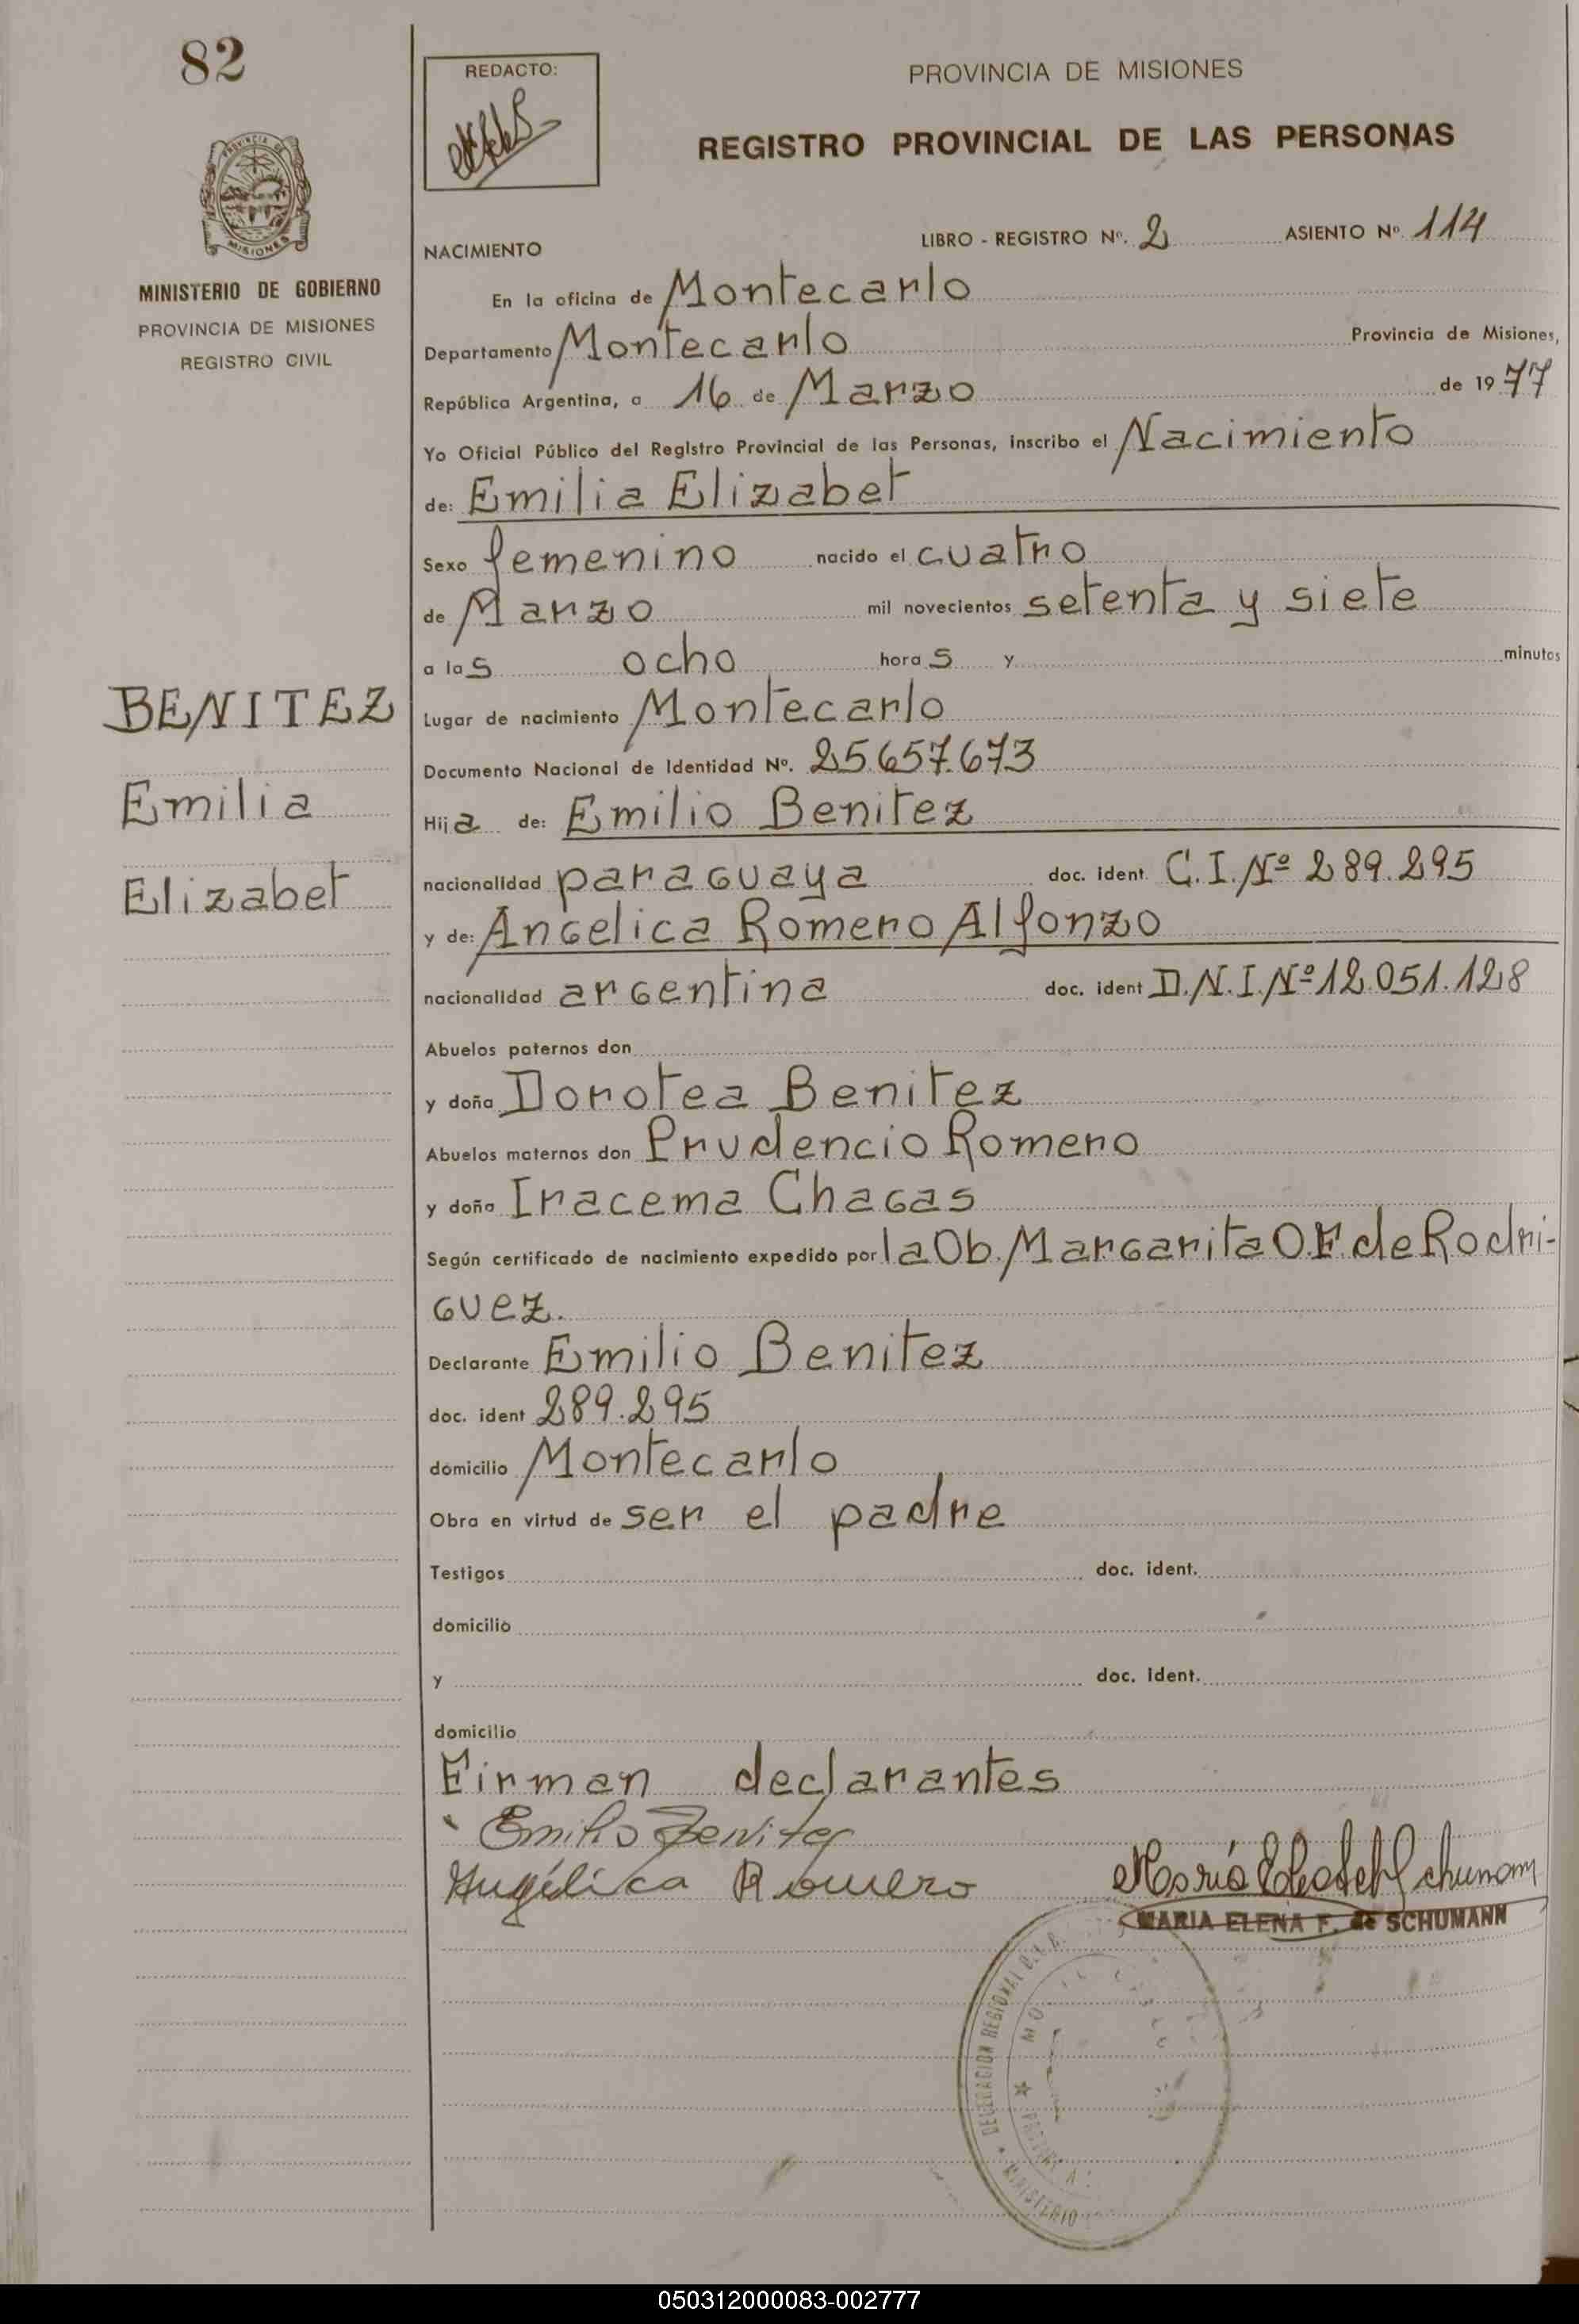 82
REDACTO:
PROVINCIA DE MISIONES
REGISTRO PROVINCIAL DE LAS PERSONAS
PROVINCIA DE
MISIONES
MINISTERIO DE GOBIERNO
PROVINCIA DE MISIONES
REGISTRO CIVIL
NACIMIENTO
LIBRO - REGISTRO Nº. 2 ASIENTO Nº. 114
En la oficina de Montecarlo
Departamento Montecarlo Provincia de Misiones,
República Argentina, a 16 de Marzo de 1977
Yo Oficial Público del Registro Provincial de las Personas, inscribo el Nacimiento
de: Emilia Elizabet
Sexo femenino nacido el cuatro
de Marzo mil novecientos setenta y siete
a las ocho horas y minutos
BENITEZ
Emilia
Elizabet
Lugar de nacimiento Montecarlo
Documento Nacional de Identidad Nº. 25.657.673
Hija de: Emilio Benitez
nacionalidad paraguaya doc. ident. C.I.Nº 289.295
y de: Angelica Romero Alfonzo
nacionalidad argentina doc. ident D.N.I.Nº 12.051.128
Abuelos paternos don
y doña Dorotea Benitez
Abuelos maternos don Prudencio Romero
y doña Iracema Chagas
Según certificado de nacimiento expedido por la Ob. Margarita O.F. de Rodri-
guez.
Declarante Emilio Benitez
doc. ident 289.295
domicilio Montecarlo
Obra en virtud de ser el padre
Testigos doc. ident.
domicilio
y doc. ident.
domicilio
Firman declarantes
Emilio Benitez
Angélica Romero
MARIA ELENA F. de SCHUMANN
DELEGACION REGIONAL
MINISTERIO
050312000083-002777